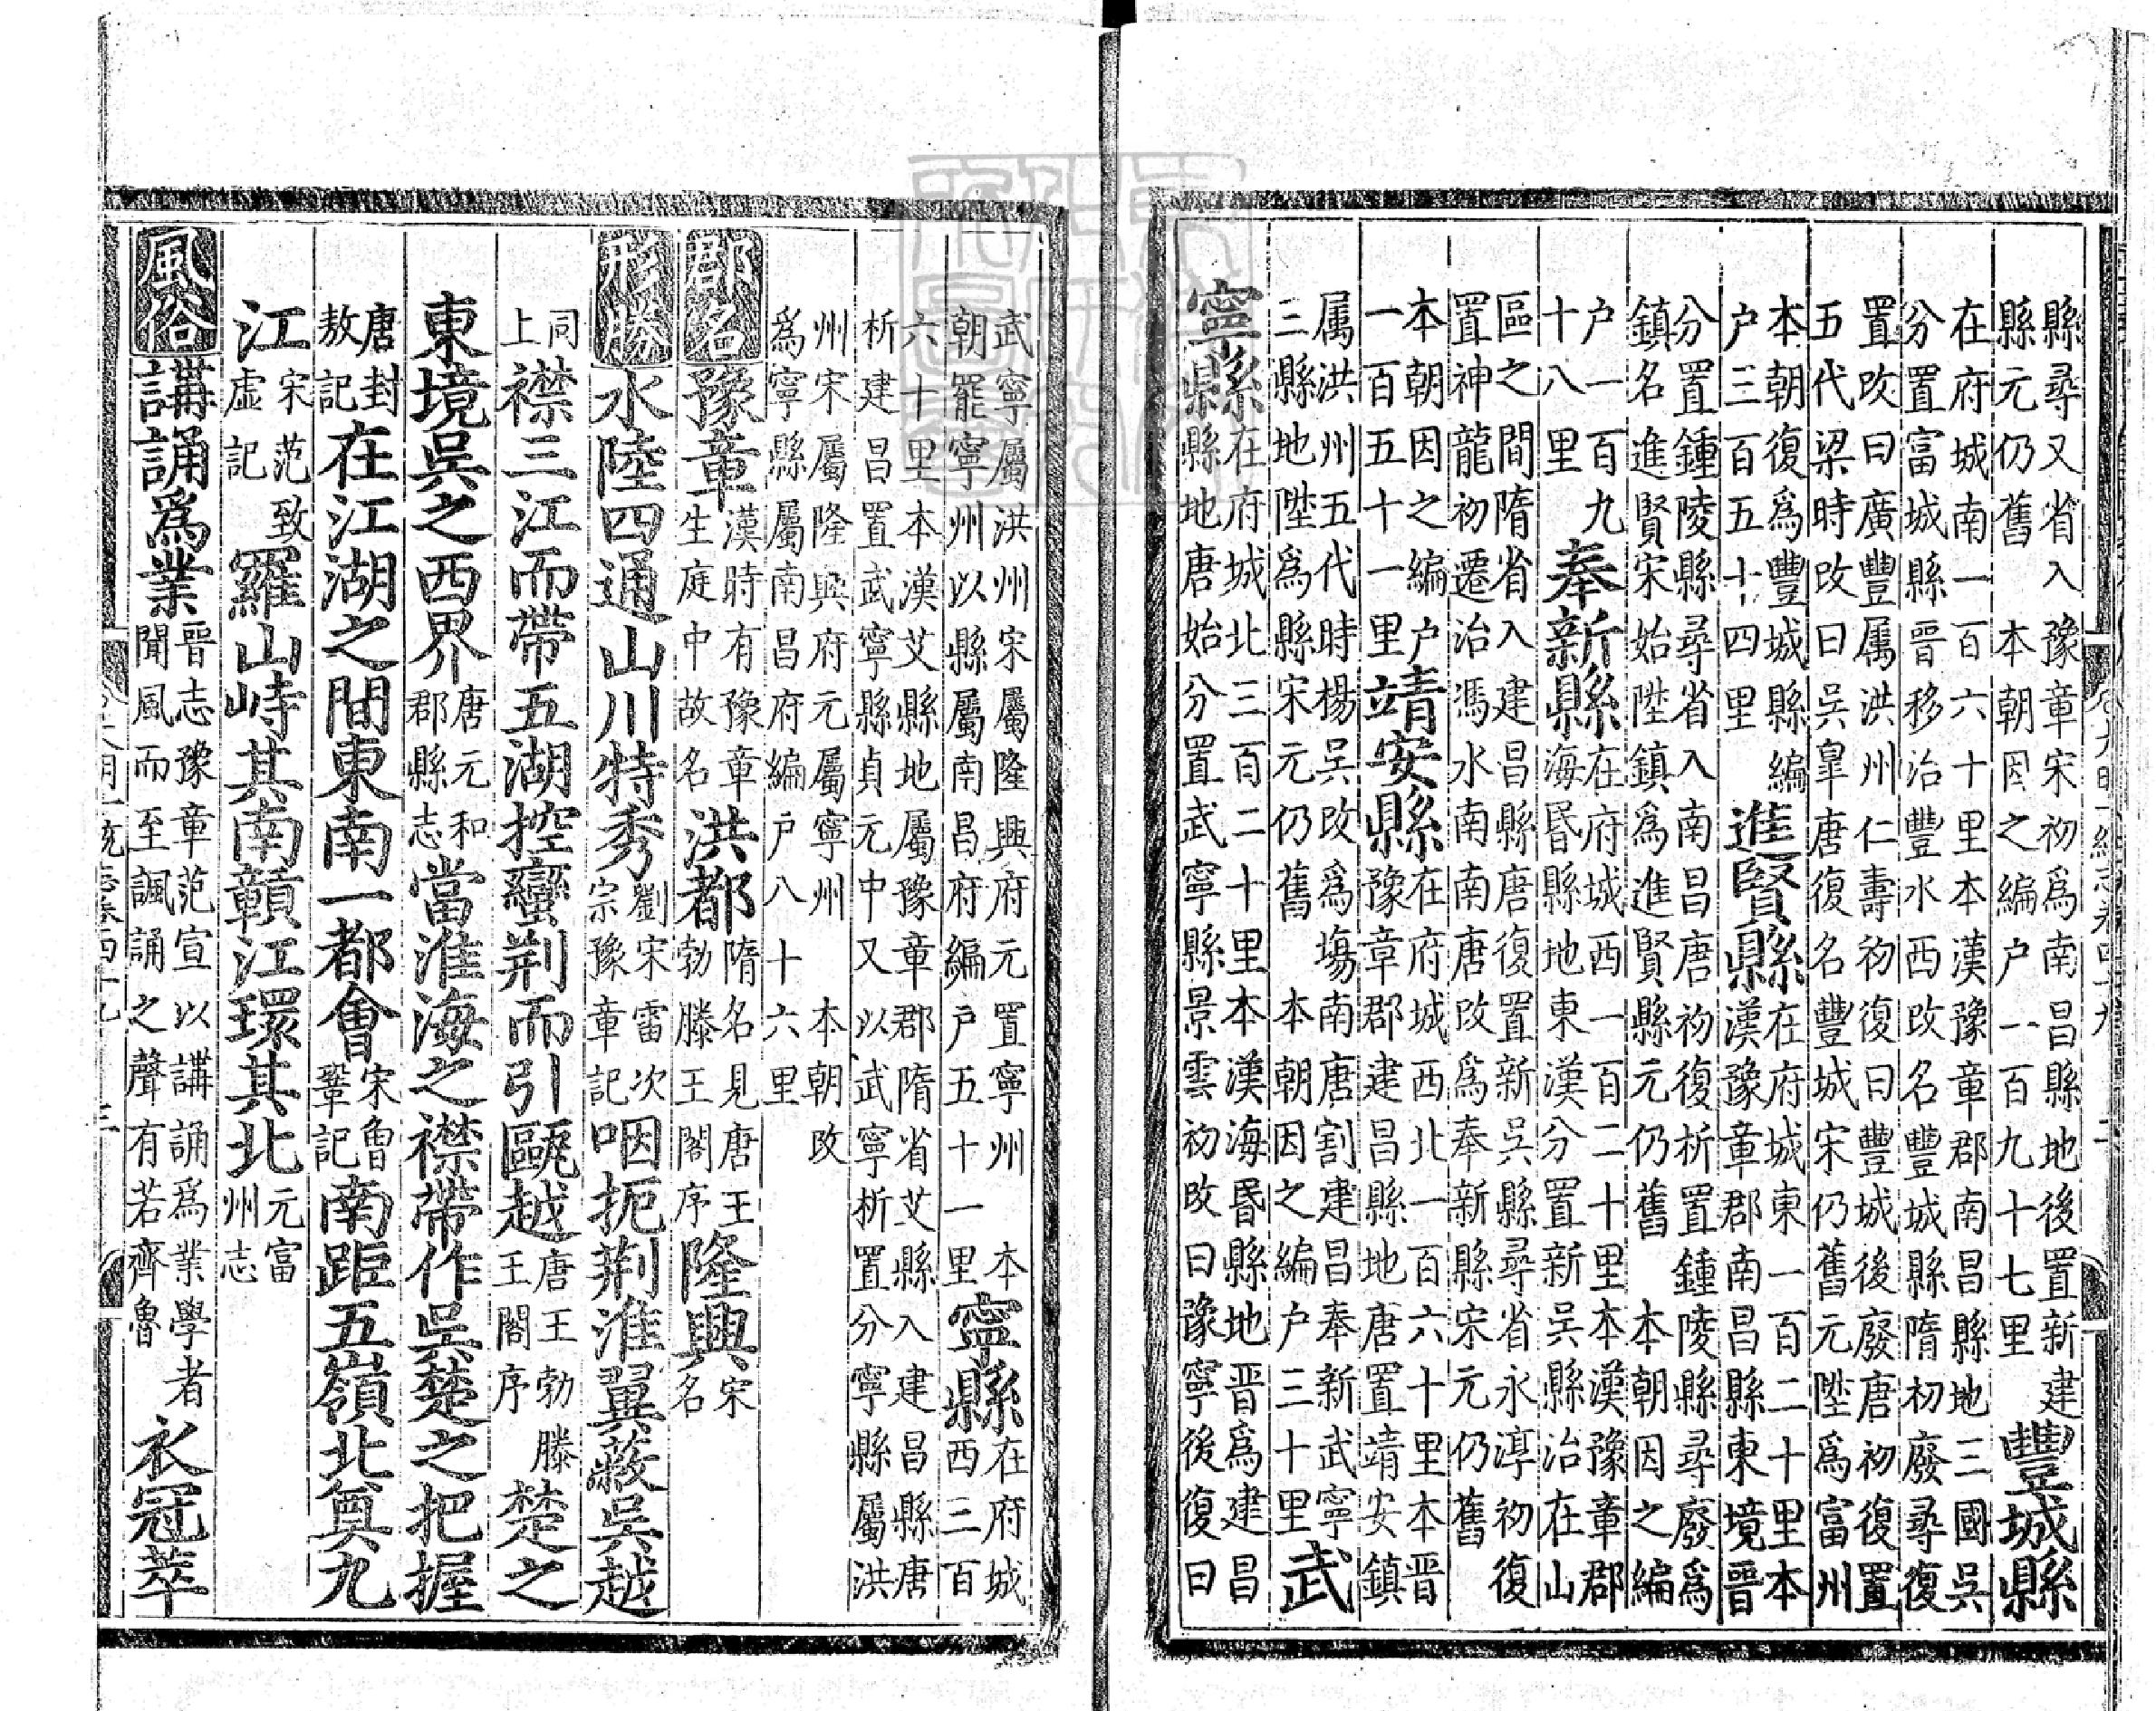 縣尋又省入豫章宋初爲南昌縣地後置新建
縣元仍舊　本朝因之編户一百九十七里
豐城縣
在府城南一百六十里本漢豫章郡南昌縣地三國吳
分置富城縣晉移治豐水西改名豐城縣隋初廢尋復
置改曰廣豐属洪州仁壽初復曰豐城後廢唐初復置
五代梁時改曰吳臯唐復名豐城宋仍舊元陞爲富州
本朝復爲豐城縣編
户三百五十四里
進賢縣
在府城東一百二十里本
漢豫章郡南昌縣東境晉
分置鍾陵縣尋省入南昌唐初復析置鍾陵縣尋廢爲
鎮名進賢宋始陞鎮爲進賢縣元仍舊　本朝因之編
户一百九
十八里
奉新縣
在府城西一百二十里本漢豫章郡
海昬縣地東漢分置新吳縣治在山
區之間隋省入建昌縣唐復置新吳縣尋省永淳初復
置神龍初遷治馮水南南唐改爲奉新縣宋元仍舊
本朝因之編户
一百五十一里
靖安縣
在府城西北一百六十里本晉
豫章郡建昌縣地唐置靖安鎮
属洪州五代時楊吳改爲塲南唐割建昌奉新武寧
三縣地陞爲縣宋元仍舊　本朝因之編户三十里
武
寧縣
在府城北三百二十里本漢海昬縣地晉爲建昌
縣地唐始分置武寧縣景雲初改曰豫寧後復曰
武寧屬洪州宋屬隆興府元置寧州　本
朝罷寧州以縣屬南昌府編户五十一里
寧縣
在府城
西三百
六十里本漢艾縣地屬豫章郡隋省艾縣入建昌縣唐
析建昌置武寧縣貞元中又以武寧析置分寧縣屬洪
州宋屬隆興府元屬寧州　本朝改
爲寧縣屬南昌府編户八十六里
郡名
豫章
漢時有豫章
生庭中故名
洪都
隋名見唐王
勃滕王閣序
隆興
宋
名
形勝
水陸四通山川特秀
劉宋雷次
宗豫章記
咽扼荆淮翼蔽吳越
同
上
襟三江而帶五湖控蠻荆而引甌越
唐王勃滕
王閣序
楚之
東境吳之西界
唐元和
郡縣志
當淮海之襟帶作吳楚之把握
唐封
敖記
在江湖之間東南一都會
宋曾
鞏記
南距五嶺北奠九
江
宋范致
虛記
羅山峙其南贛江環其北
元富
州志
風俗
講誦爲業
晉志豫章范宣以講誦爲業學者
聞風而至諷誦之聲有若齊魯
衣冠萃